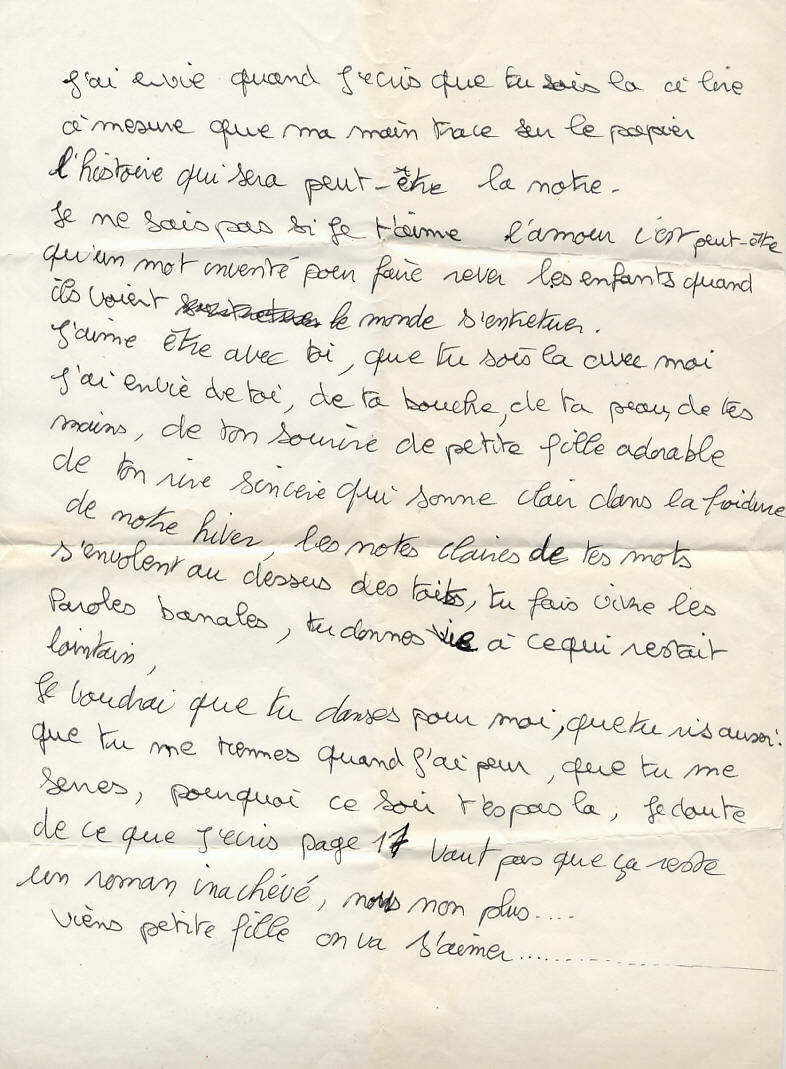 J'ai envie quand j'ecris que tu sois la à lire
à mesure que ma main trace sur le papier
l'histoire qui sera peut-être la notre.
Je ne sais pas si je t'aime l'amour c'est peut-être
qu'un mot inventé pour faire rever les enfants quand
ils voient le monde s'entretuer.
J'aime être avec toi, que tu sois la avec moi
J'ai envie de toi, de ta bouche, de ta peau, de tes
mains, de ton sourire de petite fille adorable
de ton rire sincere qui sonne clair dans la froidure
de notre hiver, les notes claires de tes mots
s'envolent au dessus des toits, tu fais vivre les
Paroles banales, tu donnes vie à ce qui restait
lointain,
Je voudrai que tu danses pour moi, que tu ris aussi.
que tu me tiennes quand j'ai peur, que tu me
serres, pourquoi ce soir t'es pas la, je doute
de ce que j'ecris page 17 vaut pas que ça reste
un roman inachévé, nous non plus....
Viens petite fille on va s'aimer..................